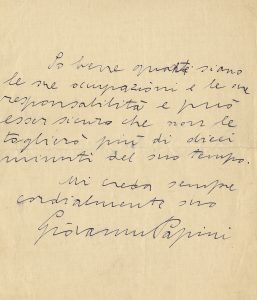 So bene quante siano
le sue occupazioni e le sue
responsabilità e può
esser sicuro che non le
toglierò più di dieci
minuti del suo tempo.
Mi creda sempre
cordialmente suo
Giovanni Papini